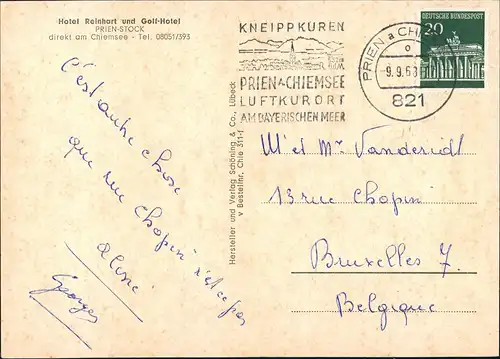 Hotel Reinhart und Golf-Hotel
PRIEN-STOCK
direkt am Chiemsee - Tel. 08051/393
C'est autre chose
que rue Chopin n'est ce pas
Georges
Hersteller und Verlag Schöning & Co., Lübeck
v Bestellnr. Chie 311-f
KNEIPPKUREN
PRIEN A. CHIEMSEE
LUFTKURORT
AM BAYERISCHEN MEER
PRIEN a CHIEM
-9.9.68
821
DEUTSCHE BUNDESPOST
20
M et Mr Vanderidt
13 rue Chopin
Bruxelles 7.
Belgique